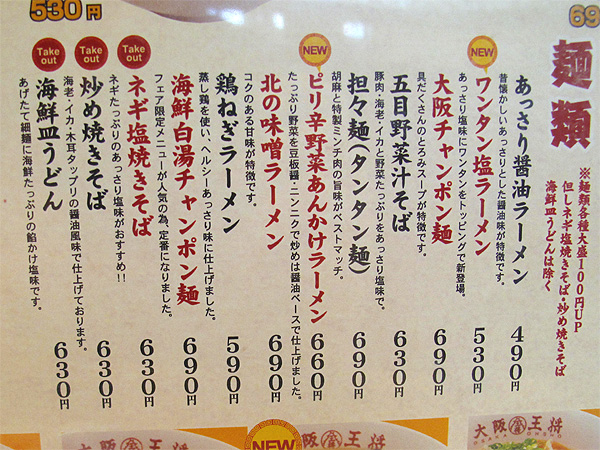 530円
69
麺類
※麺類各種大盛100円UP
但しネギ塩焼きそば・炒め焼きそば
海鮮皿うどんは除く
あっさり醤油ラーメン
490円
昔懐かしいあっさりとした醤油味が特徴です。
NEW
ワンタン塩ラーメン
530円
あっさり塩味にワンタンをトッピングで新登場。
大阪チャンポン麺
690円
具だくさんのとろみスープが特徴です。
五目野菜汁そば
630円
豚肉・海老・イカと野菜たっぷりをあっさり塩味で。
担々麺(タンタン麺)
690円
胡麻と特製ミンチ肉の旨味がベストマッチ。
NEW
ピリ辛野菜あんかけラーメン
660円
たっぷり野菜を豆板醤・ニンニクで炒めは醤油ベースで仕上げました。
北の味噌ラーメン
690円
コクのある甘味が特徴です。
鶏ねぎラーメン
590円
蒸し鶏を使い、ヘルシーあっさり味に仕上げました。
海鮮白湯チャンポン麺
690円
フェア限定メニューが人気の為、定番になりました。
Take out
ネギ塩焼きそば
630円
ネギたっぷりのあっさり塩味がおすすめ!!
Take out
炒め焼きそば
630円
海老・イカ・木耳タップリの醤油風味で仕上げております。
Take out
海鮮皿うどん
630円
あげたて細麺に海鮮たっぷりの餡かけ塩味です。
大阪王将
NEW
大阪王将
大阪王将
OSAKA OHSHO